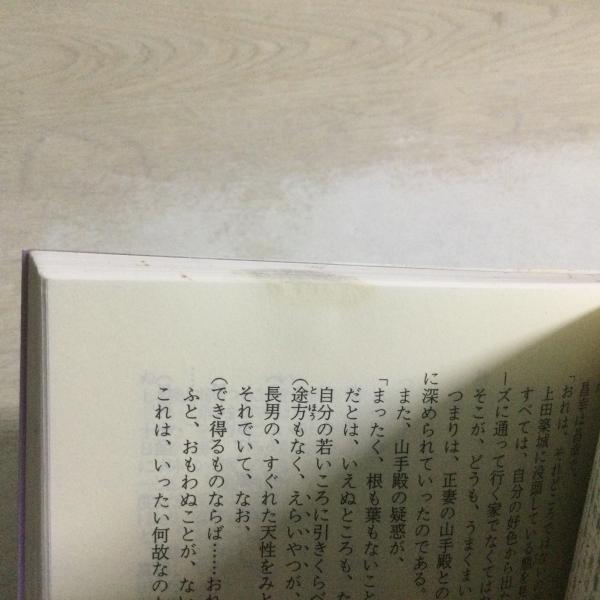 「おれは、それどころではない
上田築城に没頭している態を見
すべては、自分の好色から出た
ーズに通って行く家でなくてはな
そこが、どうも、うまくまい
つまりは、正妻の山手殿との
に深められていったのである。
また、山手殿の疑惑が、
「まったく、根も葉もないこと
だとは、いえぬところも、た
自分の若いころに引きくらべ
(途方もなく、えらいやつが、
とほう
長男の、すぐれた天性をみと
それでいて、なお、
(でき得るものならば……おれ
ふと、おもわぬことが、ない
これは、いったい何故なのか